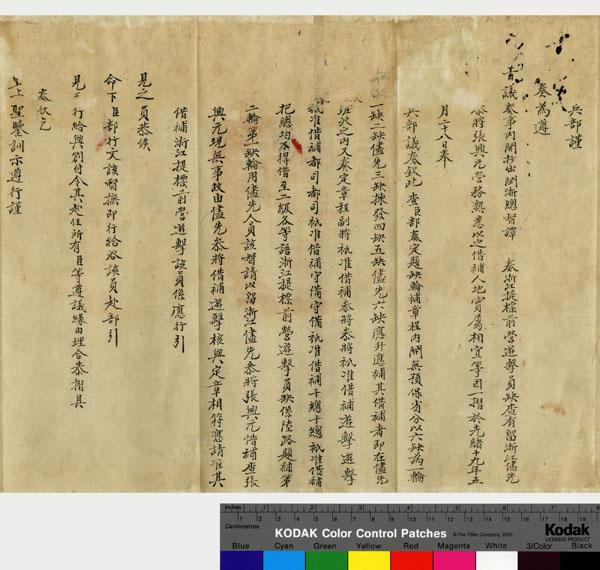 兵部謹
奏為遵
旨議奏事內閣抄出閩浙總督譚 奏浙江提標前營遊擊員缺查有留浙江儘先
叅將張興元營務熟悉以之借補人地實屬相宜等因一摺於光緒十九年五
月二十八日奉
兵部議奏欽此查臣部奏定題缺輪補章程內開無預保省分以六缺為一輪
一缺二缺儘先三缺揀發四缺五缺儘先六缺應升應補其借補者即在儘先
班次之內又奏定章程副將祗准借補叅將叅將祗准借補遊擊遊擊
祗准借補都司都司祗准借補守備守備祗准借補千總千總祗准借補
把總均不得借至二級各等語浙江提標前營遊擊員缺係陸路題補第
二輪第一缺輪用儘先人員該督請以留浙江儘先叅將張興元借補查張
興元現無事故由儘先叅將借補遊擊核與定章相符應請准其
借補浙江提標前營遊擊該員係應行引
見之員恭候
命下臣部行文該督撫即行給咨該員赴部引
見後行給與劄付令其赴任所有臣等遵議緣由理合恭摺具
奏伏乞
皇上聖鑒訓示遵行謹
Inches 1 2 3 4 5 6 7 8
Centimetres 1 2 3 4 5 6 7 8 9 10 11 12 13 14 15 16 17 18 19
KODAK Color Control Patches © The Tiffen Company, 2000 Kodak
LICENSED PRODUCT
Blue Cyan Green Yellow Red Magenta White 3/Color Black